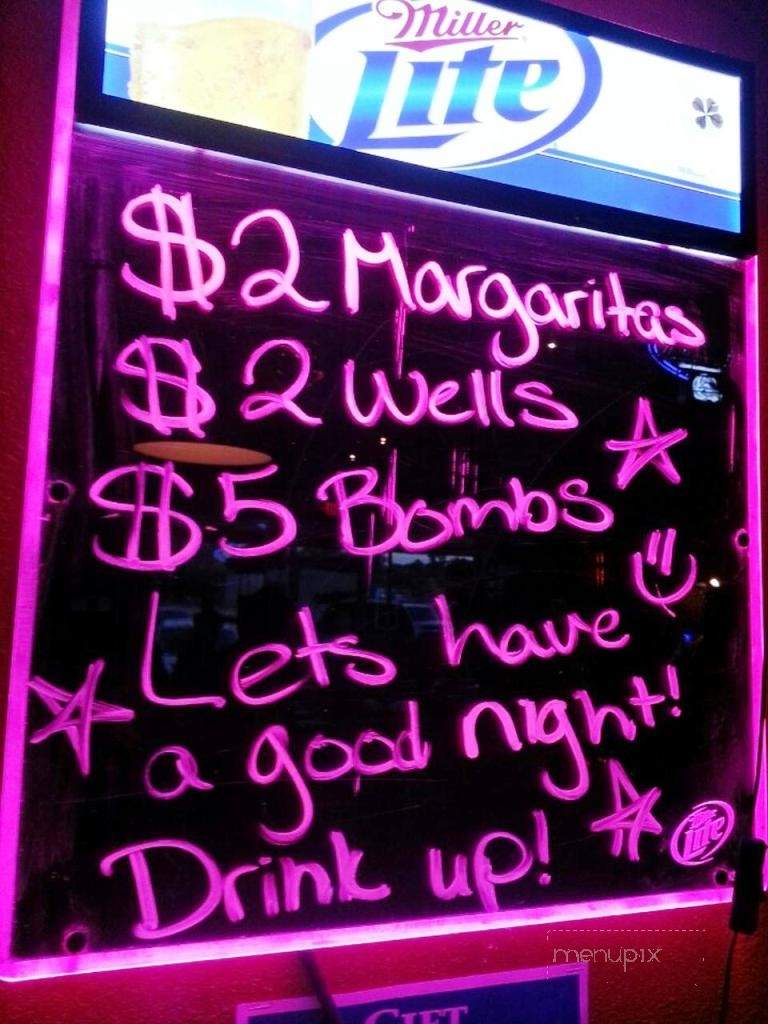 Miller
Lite
$2 Margaritas
$2 Wells
$5 Bombs
Lets have
a good night!
Drink up!
Miller
Lite
menupix
GIFT